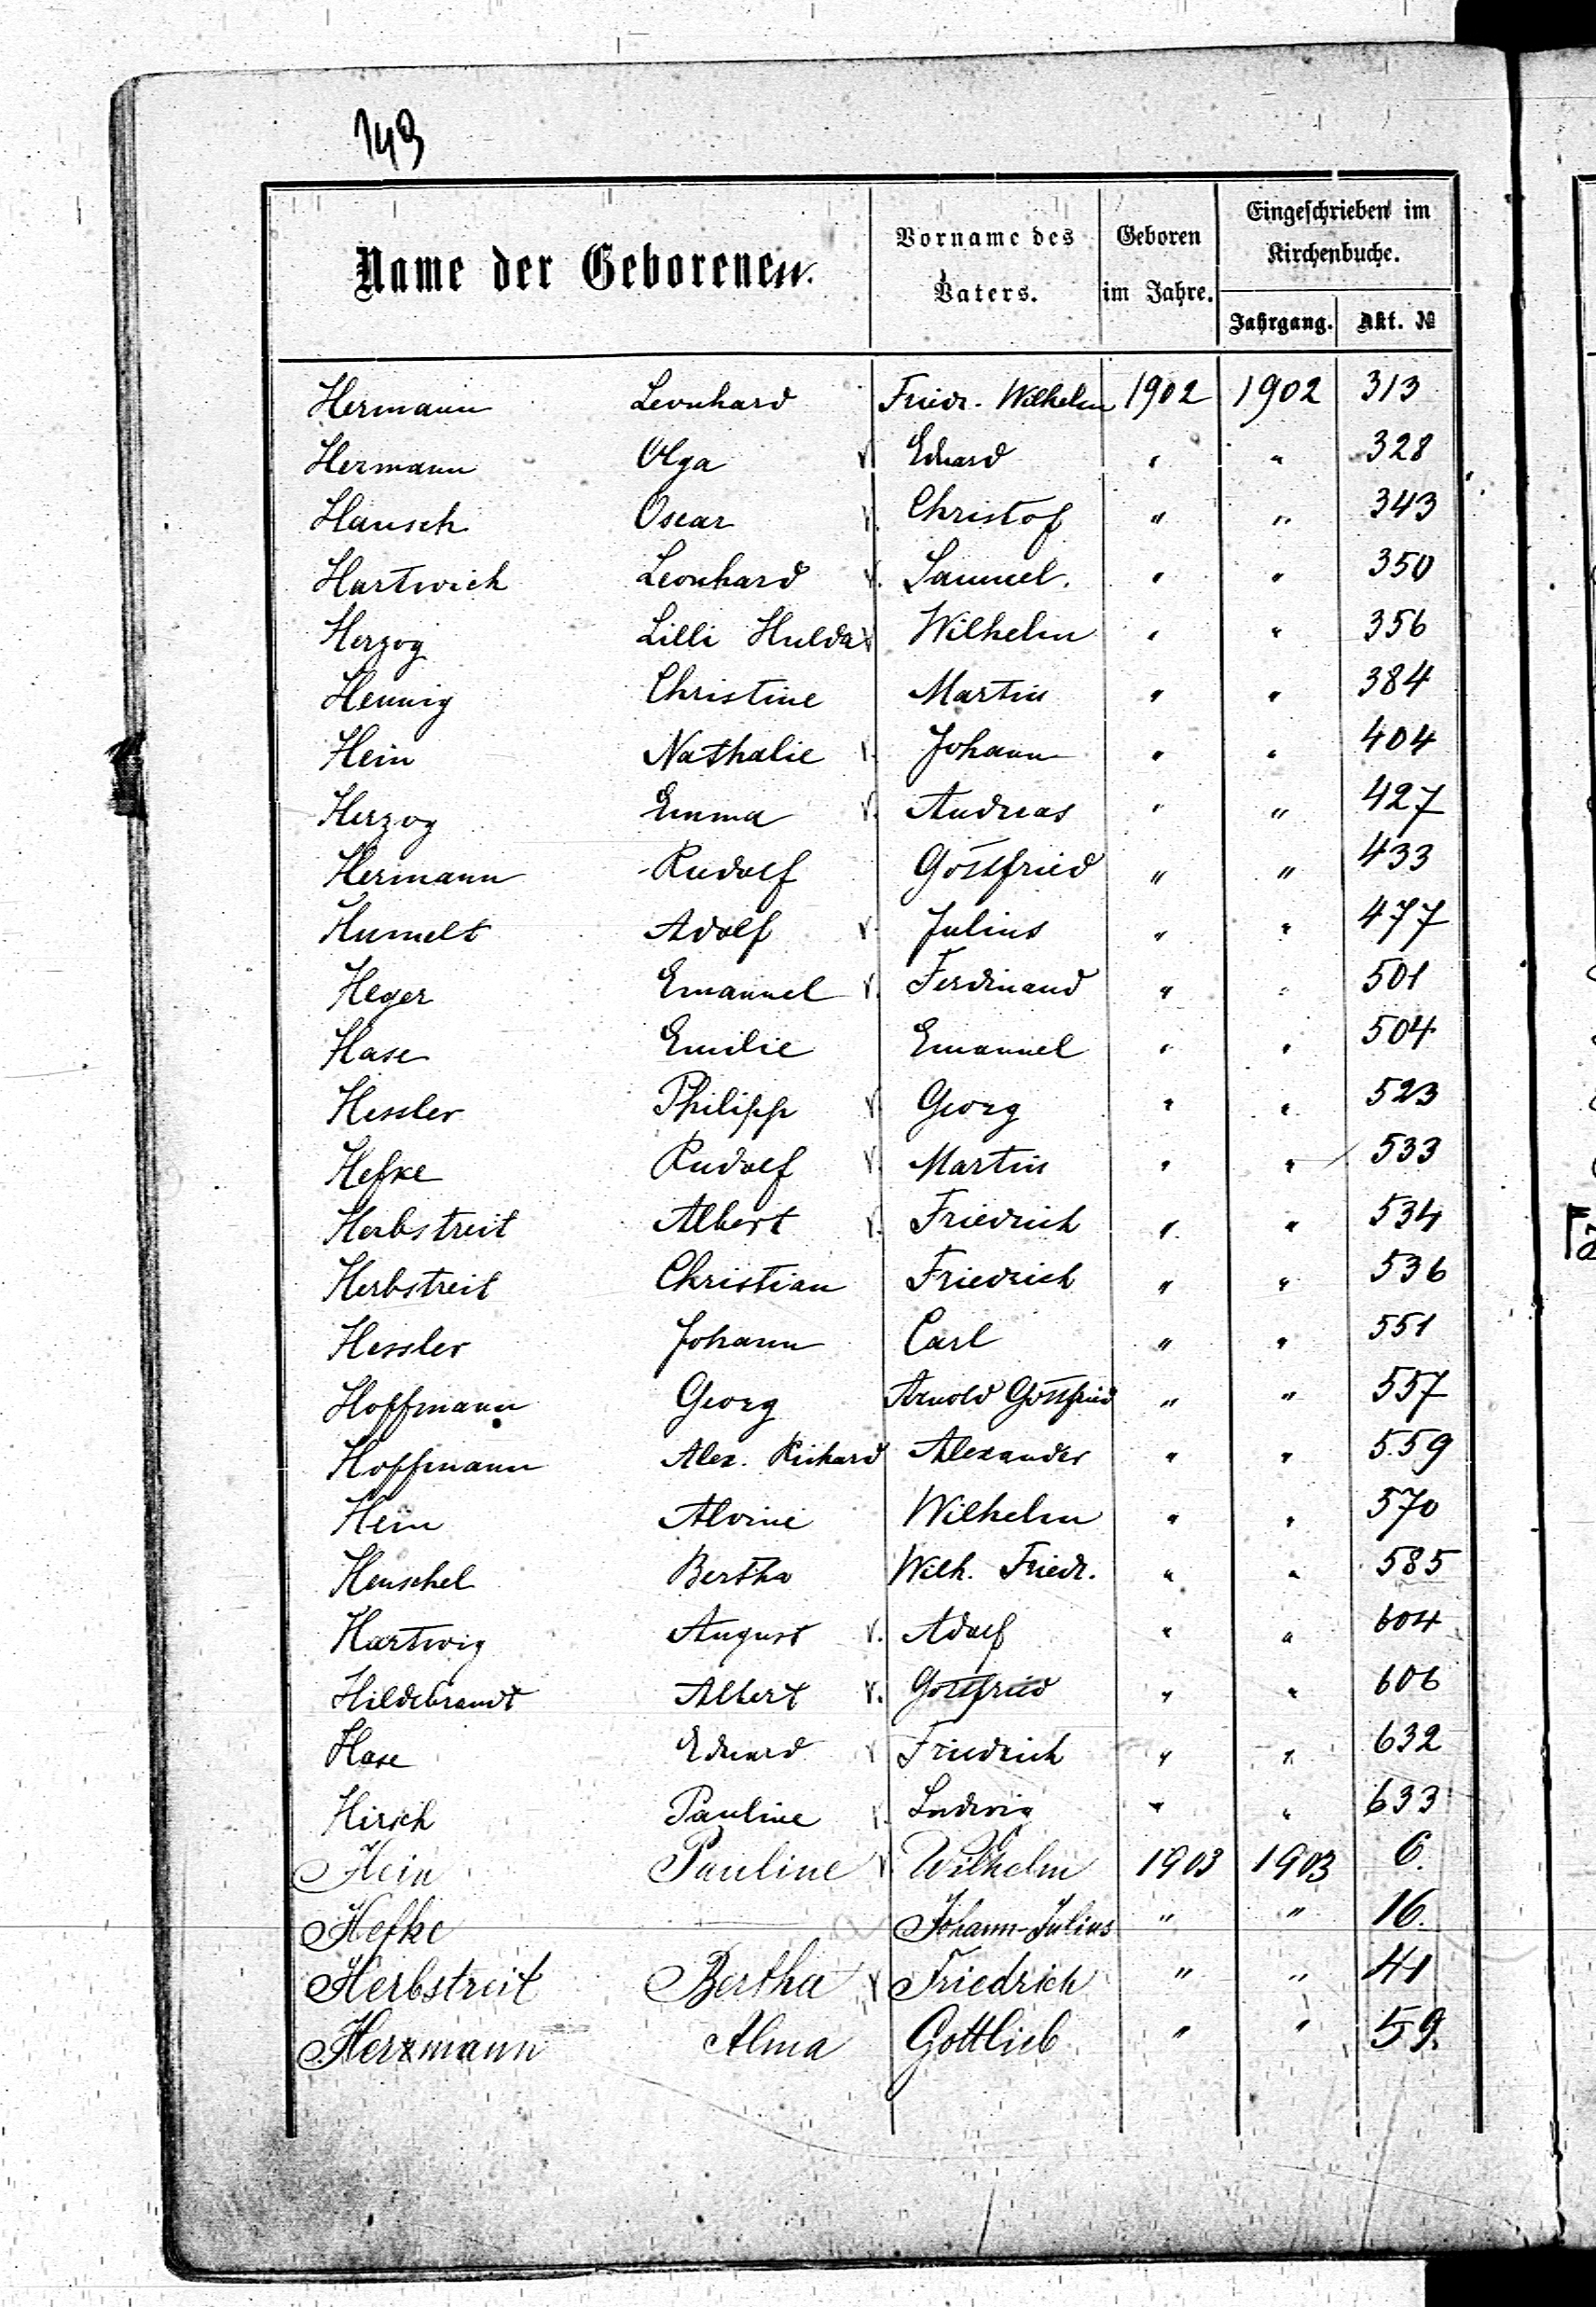 143
Name der Geborenen. Vorname des Vaters. Geboren im Jahre. Eingeschrieben im Kirchenbuche. Jahrgang. Akt. №
Hermann Leonhard Friedr. Wilhelm 1902 1902 313
Hermann Olga v Eduard " " 328
Hausch Oscar v. Christof " " 343
Hartwich Leonhard v. Samuel. " " 350
Herzog Lilli Hulda v Wilhelm " " 356
Hennig Christine Martin " " 384
Hein Nathalie v. Johann " " 404
Herzog Emma v. Andreas " " 427
Hermann Rudolf Gottfried " " 433
Humelt Adolf v. Julius " " 477
Heger Emanuel v. Ferdinand " " 501
Hase Emilie Emanuel " " 504
Hessler Philipp v Georg " " 523
Hefke Rudolf v. Martin " " 533
Herbstreit Albert v. Friedrich " " 534
Herbstreit Christian Friedrich " " 536
Hessler Johann Carl " " 551
Hoffmann Georg Arnold Gottfried " " 557
Hoffmann Alex. Richard Alexander " " 559
Hein Alvine Wilhelm " " 570
Henschel Bertha Wilh. Friedr. " " 585
Hartwig August v. Adolf " " 604
Hildebrandt Albert v. Gottfried " " 606
Hase Eduard v Friedrich " " 632
Hirsch Pauline v. Ludwig " " 633
Hein Pauline v Wilhelm 1903 1903 6.
Hefke Johann-Julius " " 16.
Herbstreit Bertha v Friedrich " " 41
Herzmann Alma Gottlieb " " 59.